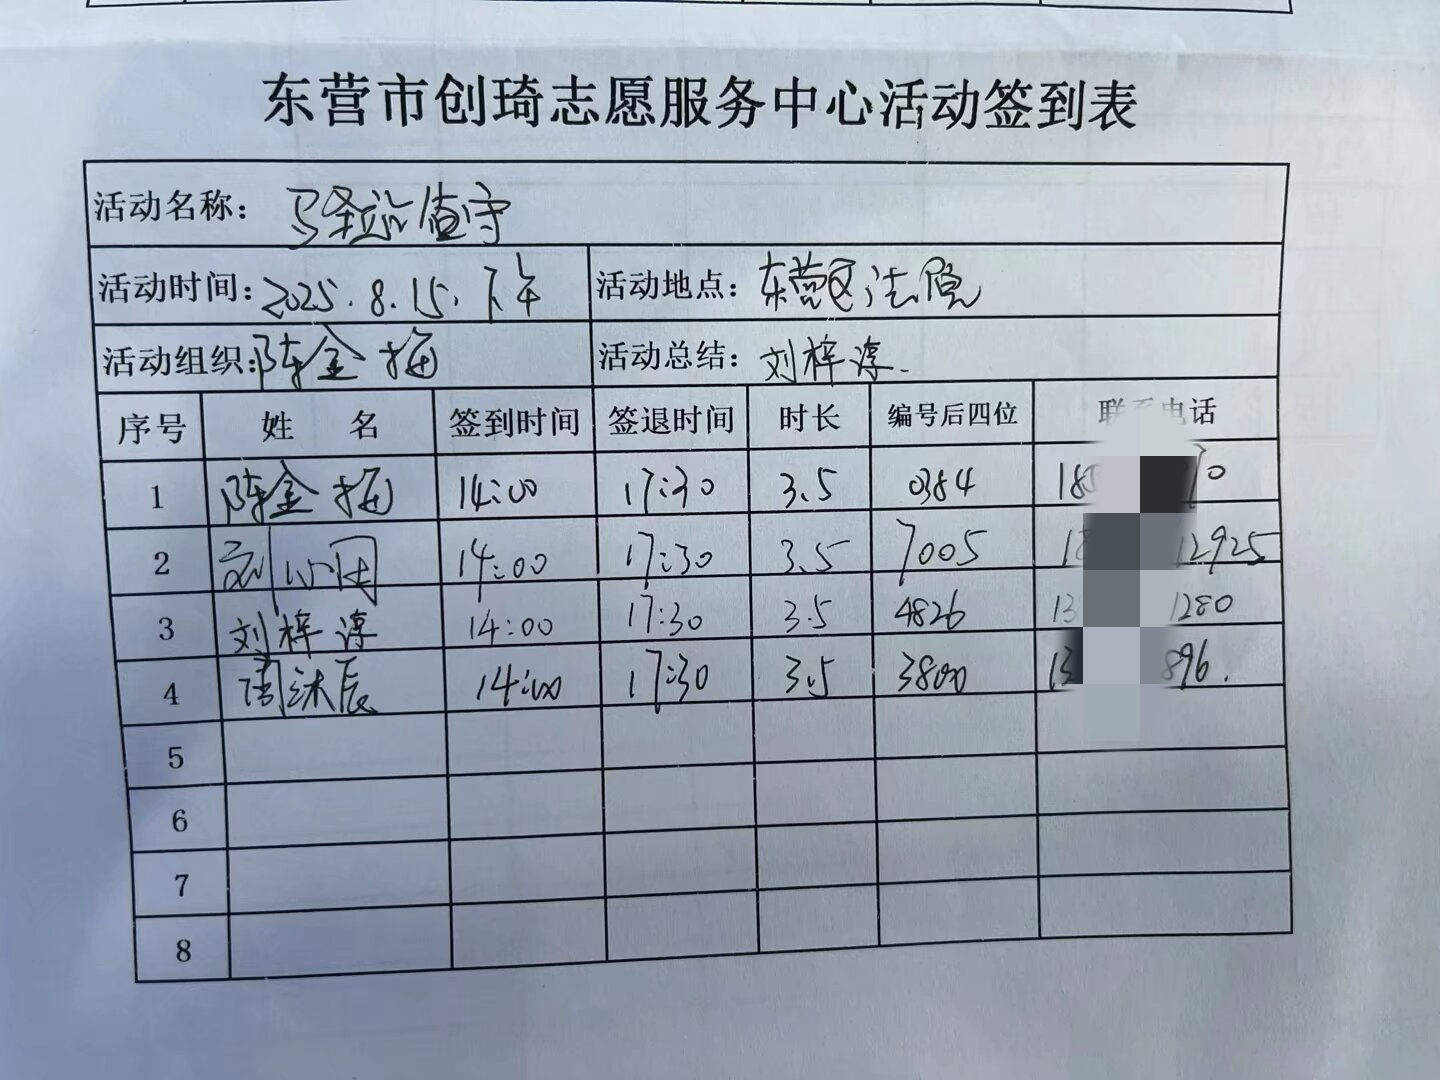 东营市创琦志愿服务中心活动签到表
活动名称: 驿站值守
活动时间: 2025.8.15.下午 活动地点: 东营区法院
活动组织: 陈金梅 活动总结: 刘梓淳.
序号 姓 名 签到时间 签退时间 时长 编号后四位 联系电话
1 陈金梅 14:00 17:30 3.5 0384 185 70
2 刘 14:00 17:30 3.5 7005 18 12925
3 刘梓淳 14:00 17:30 3.5 4826 13 1280
4 周沐辰 14:00 17:30 3.5 3800 13 896.
5
6
7
8